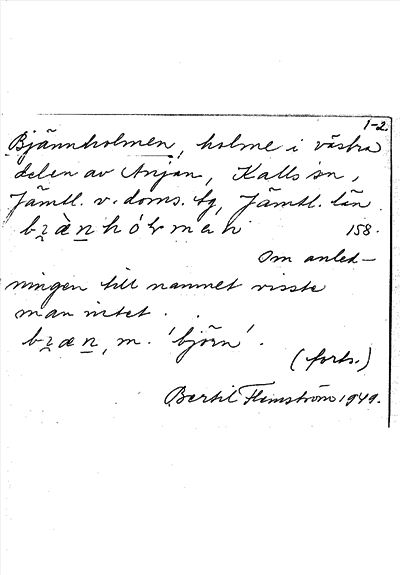 1-2.
Bjännholmen, holme i västra
delen av Anjan, Kalls sn,
Jämtl. v. doms. tg, Jämtl. län
158.
Om anled-
ningen till namnet visste
man intet.
m. 'björn'.
(forts.)
Bertil Flemström 1949.